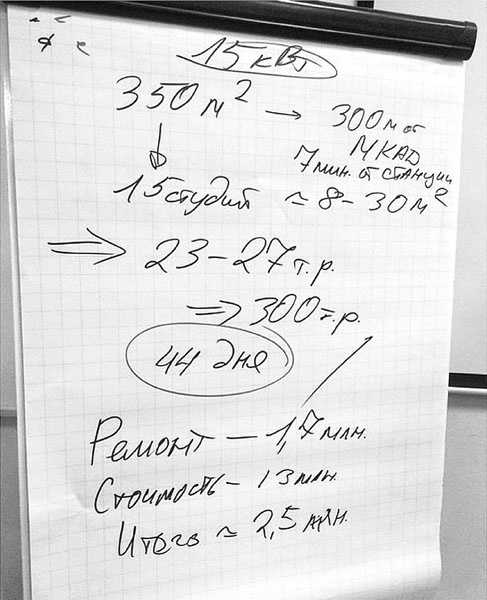 15 кВт
350 м² → 300 м от
МКАД
7 мин. от станции
15 студий ≈ 8-30 м²
⇒ 23-27 т.р.
⇒ 300 т.р.
44 дня
Ремонт - 1,7 млн.
Стоимость - 13 млн.
Итого ≈ 2,5 млн.